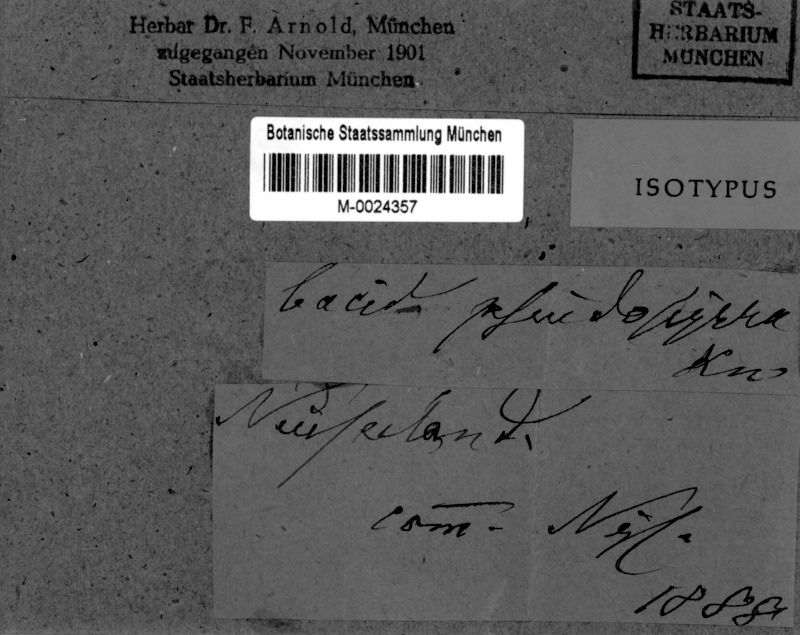 Herbar Dr. F. Arnold, München
zugegangen November 1901
Staatsherbarium München
STAATS-
HERBARIUM
MÜNCHEN
Botanische Staatssammlung München
M-0024357
ISOTYPUS
Bacid
Kn
Neuseeland.
com. Nyl.
1888